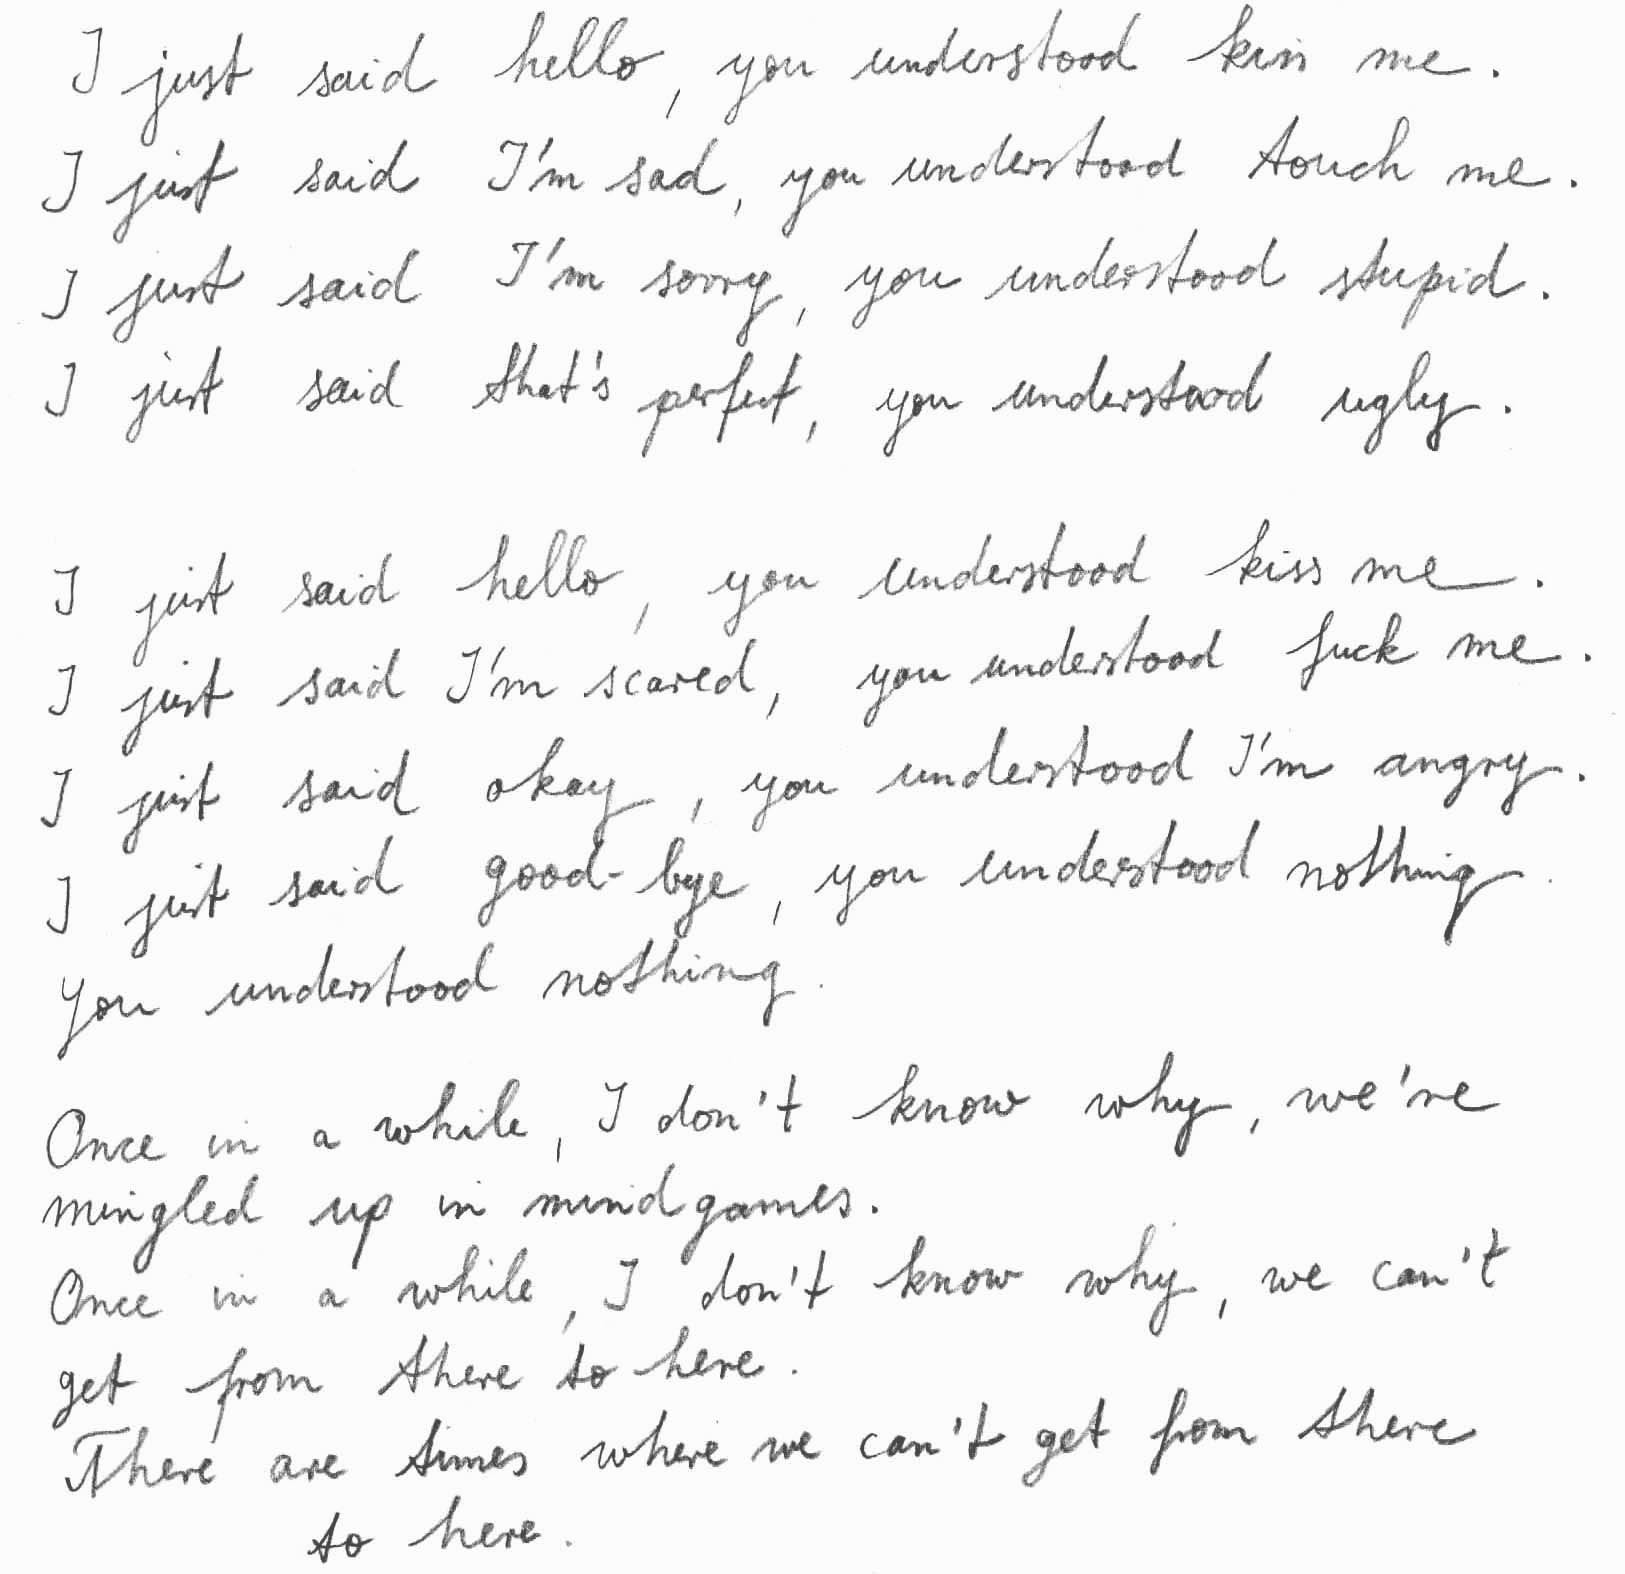 I just said hello, you understood kiss me.
I just said I'm sad, you understood touch me.
I just said I'm sorry, you understood stupid.
I just said that's perfect, you understood ugly.
I just said hello, you understood kiss me.
I just said I'm scared, you understood fuck me.
I just said okay, you understood I'm angry.
I just said good-bye, you understood nothing.
You understood nothing.
Once in a while, I don't know why, we're
mingled up in mind games.
Once in a while, I don't know why, we can't
get from there to here.
There are times where we can't get from there
to here.